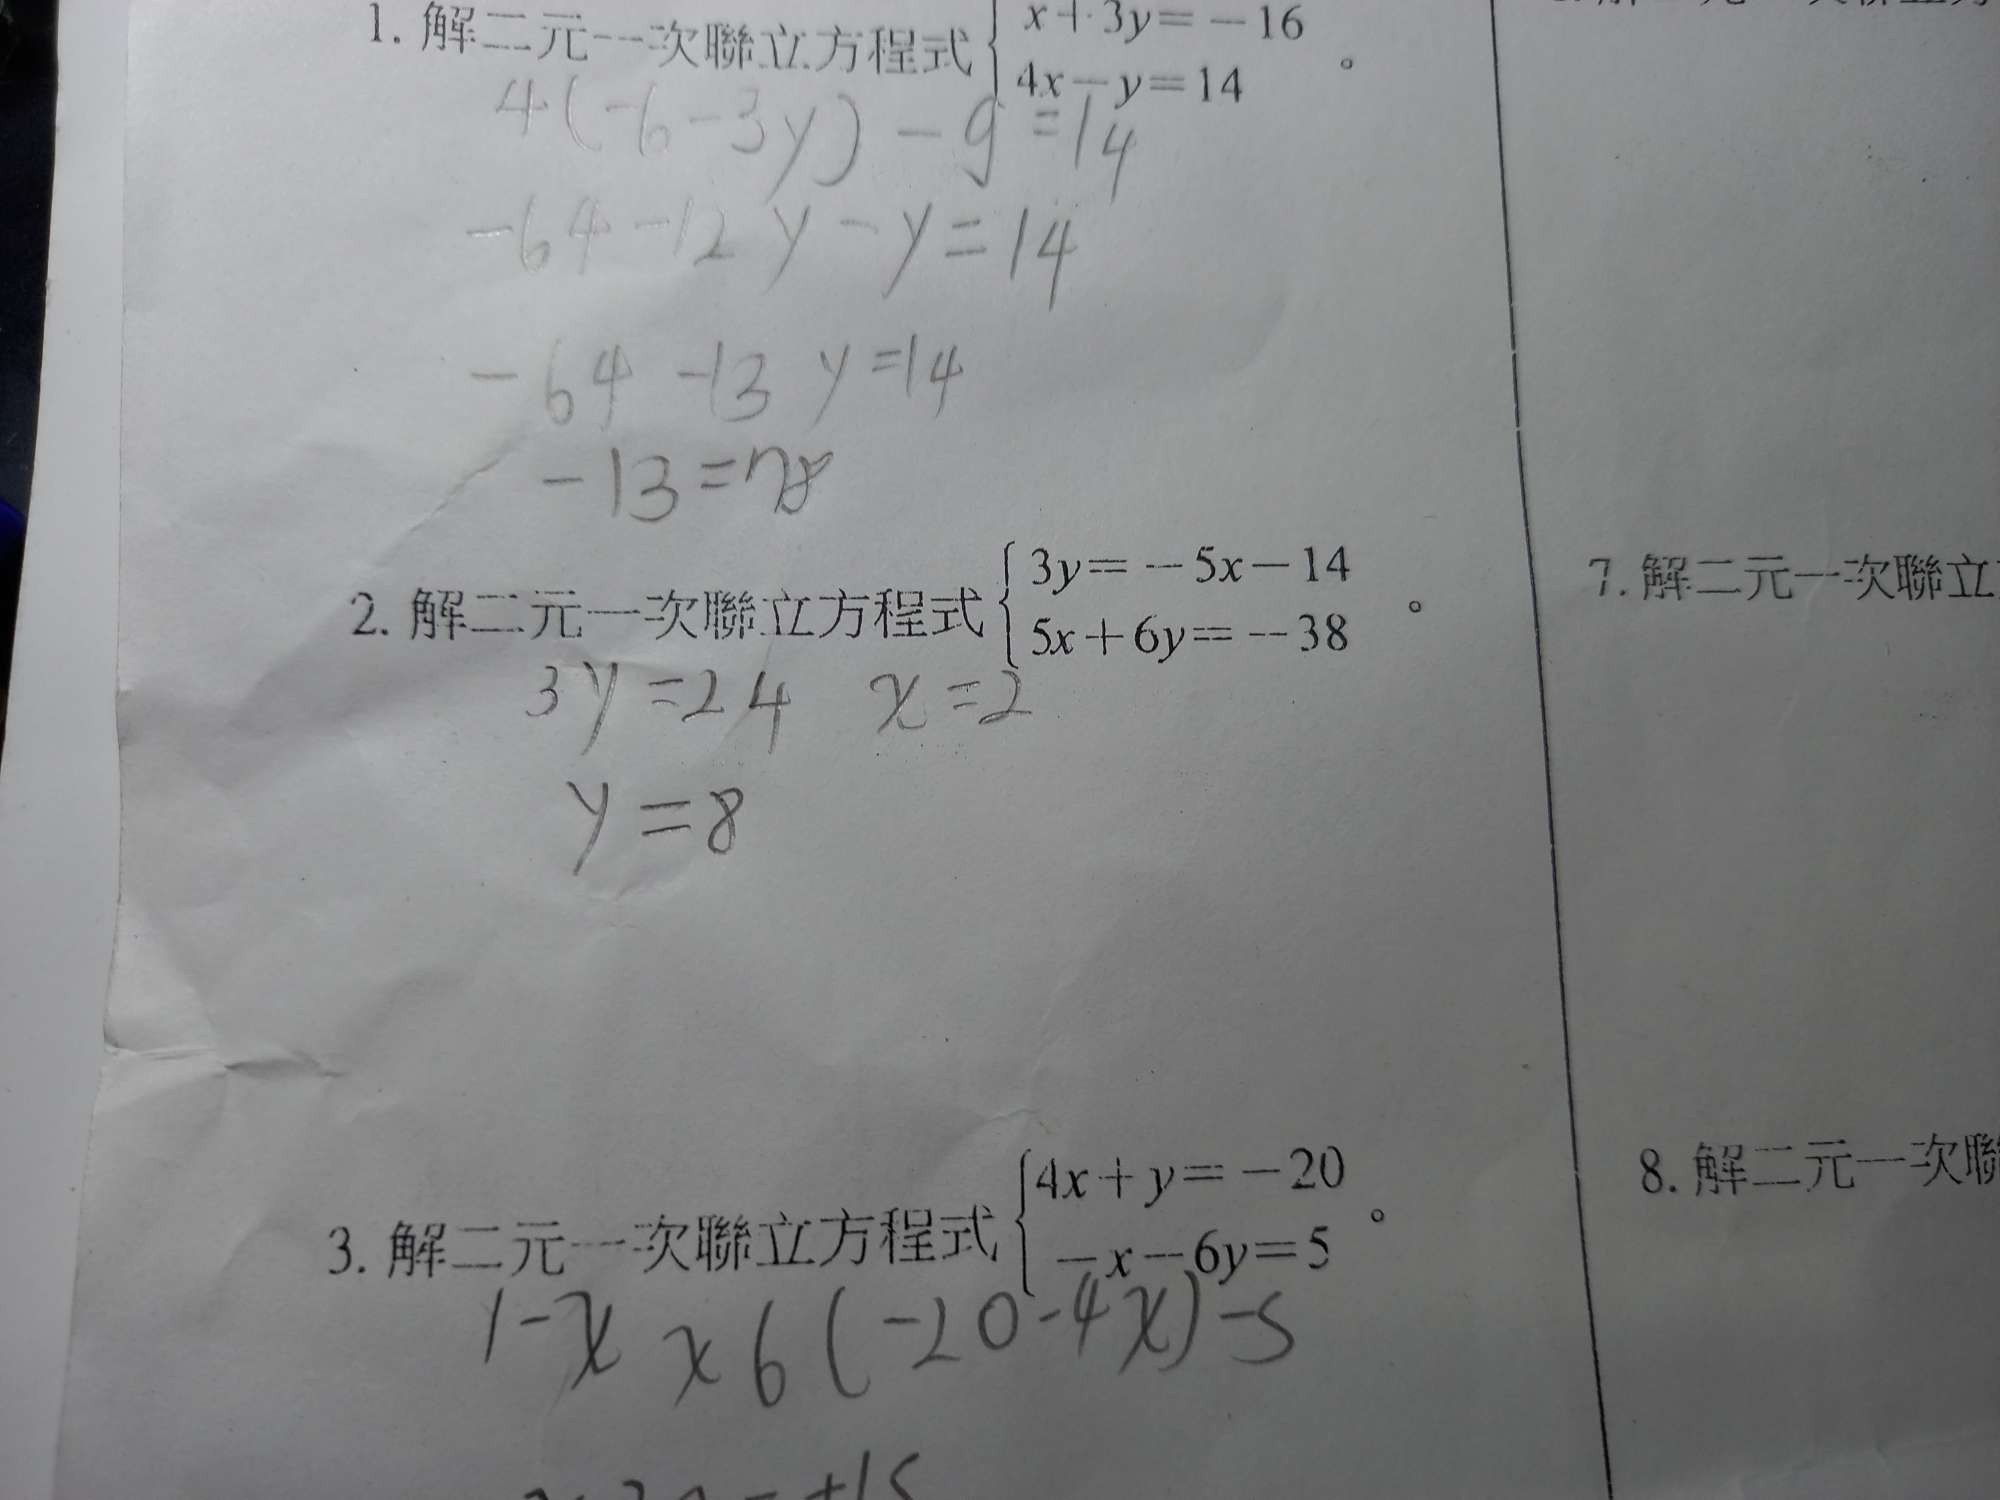 1. 解二元一次聯立方程式 { x+3y=-16
4x-y=14 。
4(-6-3y)-9=14
-64-12y-y=14
-64-13y=14
-13=78
2. 解二元一次聯立方程式 { 3y=-5x-14
5x+6y=-38 。
3y=24 x=2
y=8
3. 解二元一次聯立方程式 { 4x+y=-20
-x-6y=5 。
1-x x6(-20-4x)-5
7. 解二元一次聯立
8. 解二元一次聯